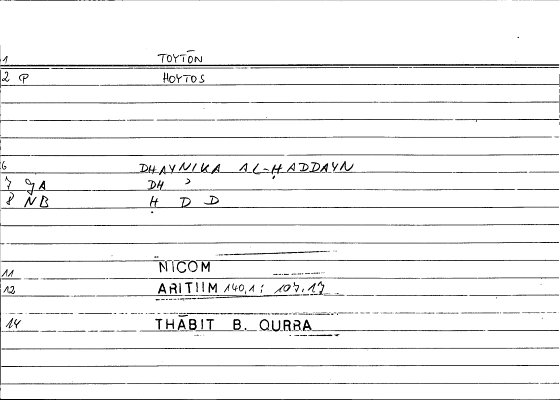 1 TOYTŌN
2 P HOYTOS
6 DHAYNIKA AL-ḤADDAYN
7 gA DH ʾ
8 NB Ḥ D D
11 NICOM
12 ARITIIM 140,1 : 107,17
14 THĀBIT B. QURRA